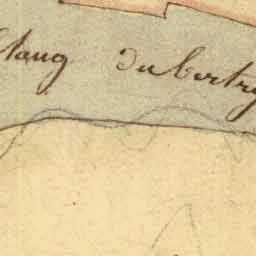 Etang Du Bertry